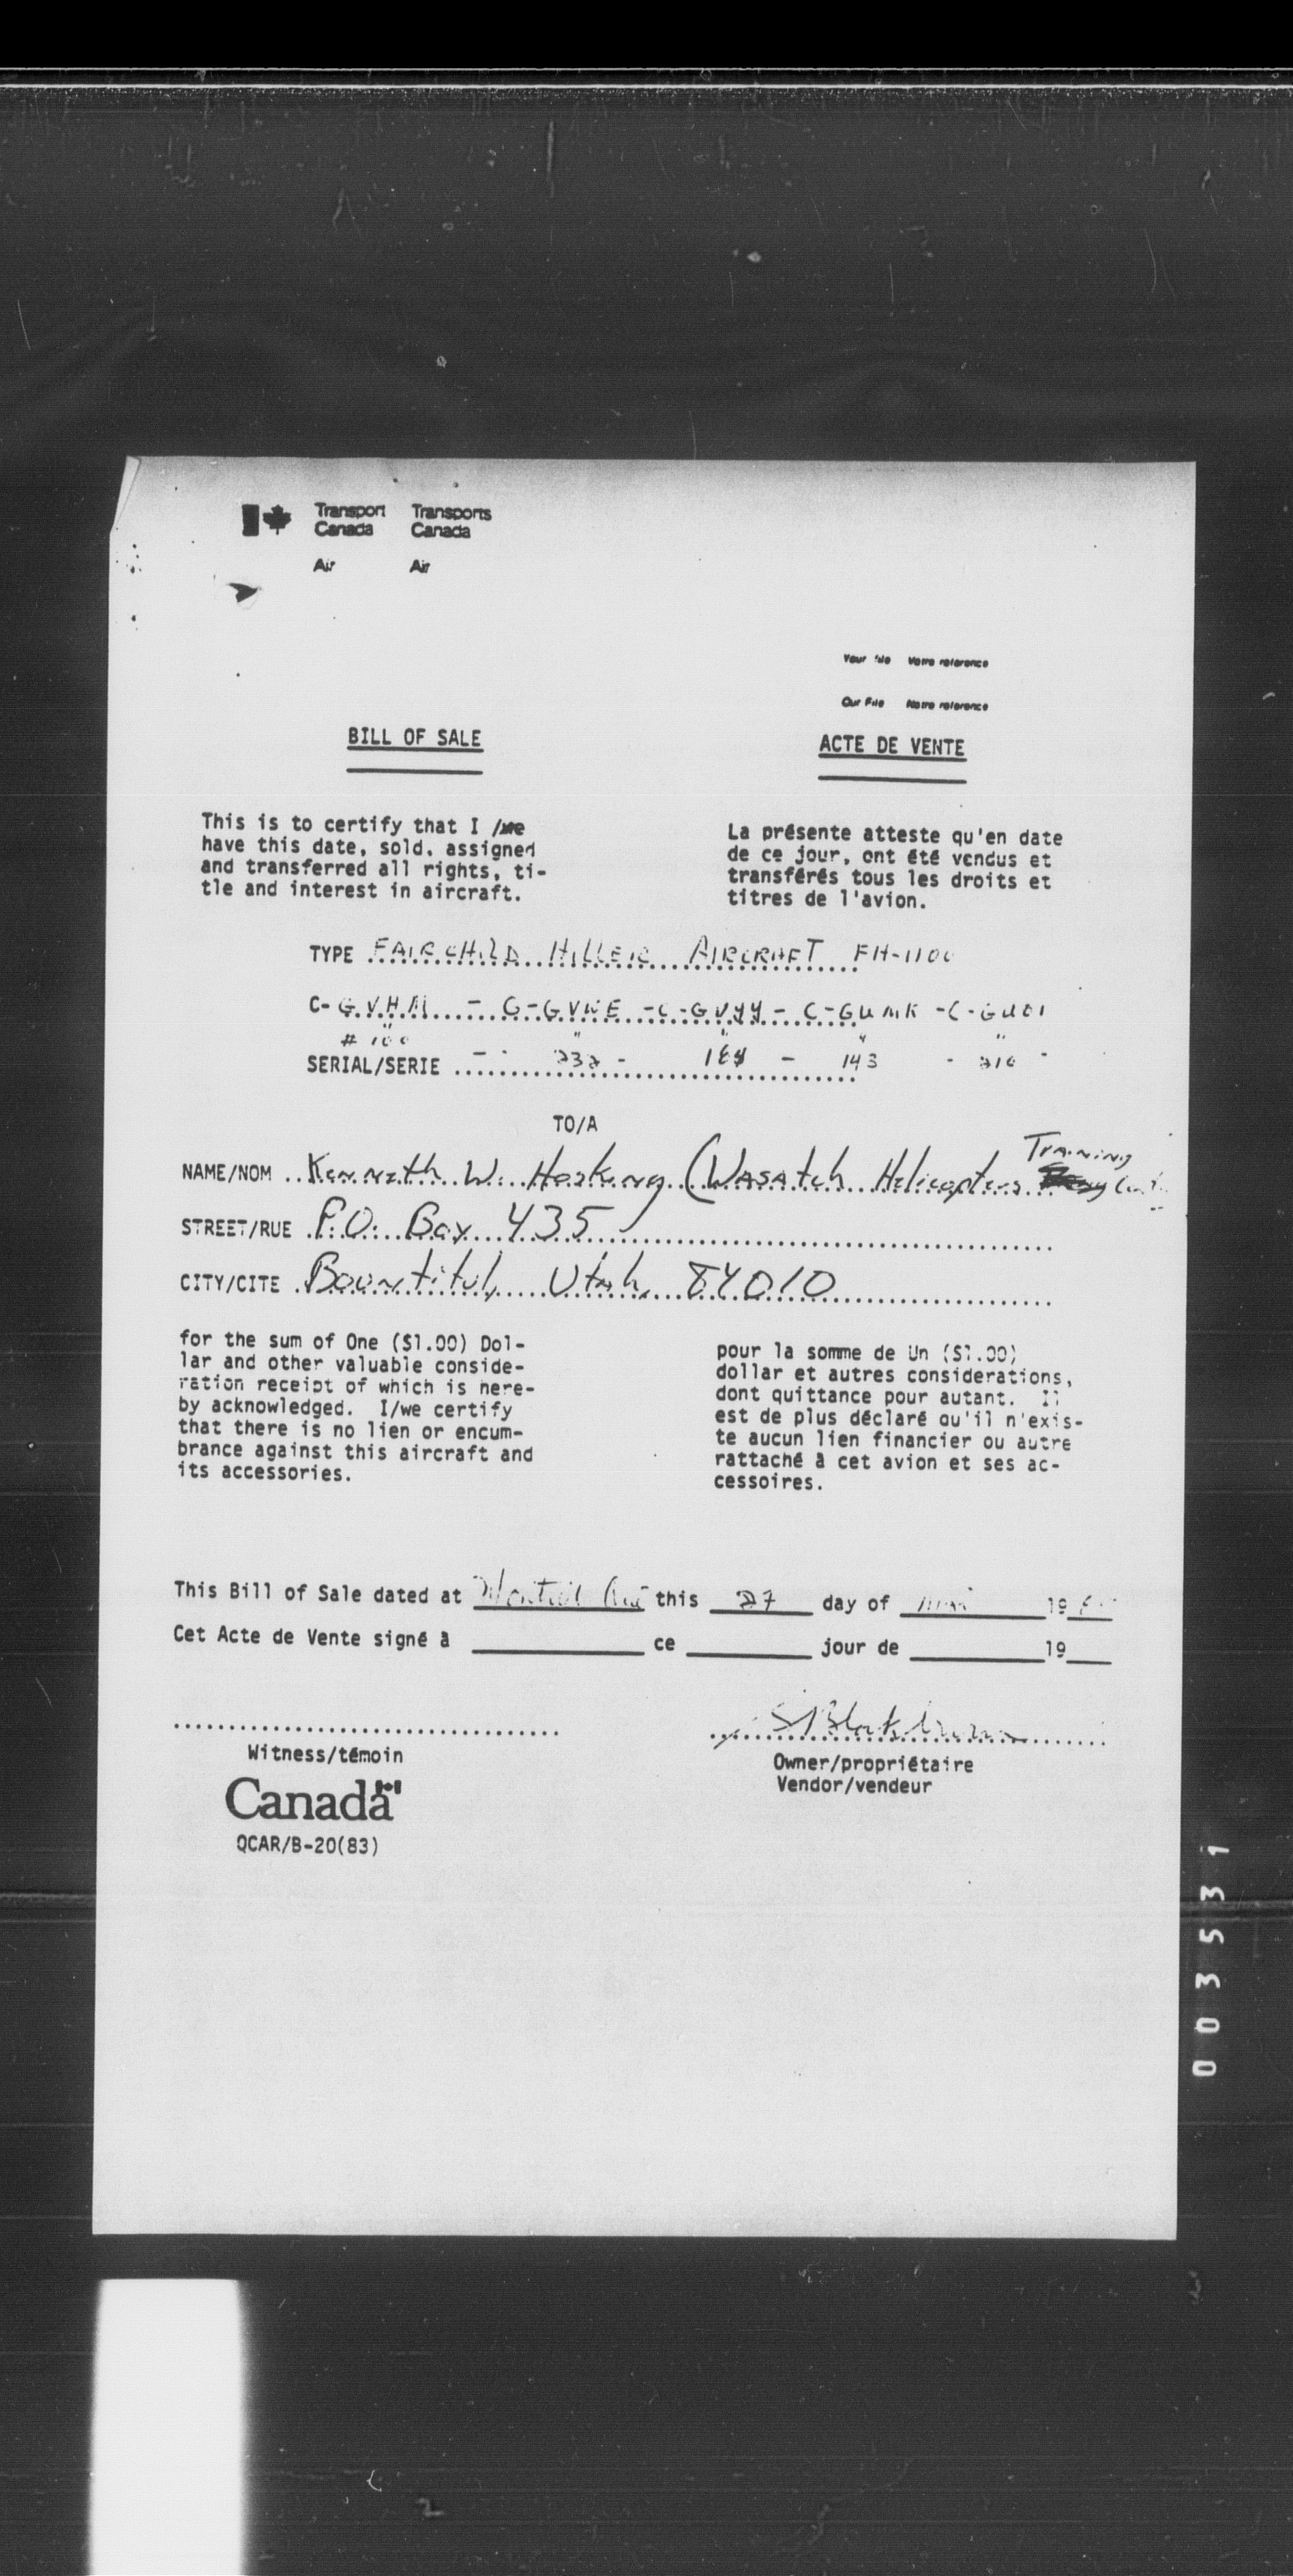 Transport Canada Transports Canada
Air Air
Your file Votre reference
Our File Notre reference
BILL OF SALE
ACTE DE VENTE
This is to certify that I /we
have this date, sold, assigned
and transferred all rights, ti-
tle and interest in aircraft.
La présente atteste qu'en date
de ce jour, ont été vendus et
transférés tous les droits et
titres de l'avion.
TYPE FAIRCHILD HILLER AIRCRAFT FH-1100
C-G.V.H.M - C-GVNE -C-GVYY - C-GUMK -C-GUOI
# 100
SERIAL/SERIE -- 232 - 184 - 143 - 210 -
TO/A
Training
NAME/NOM Kenneth W. Hosking (WASAtch Helicopters
STREET/RUE P.O. Box 435
CITY/CITE Bountiful, Utah, 84010
for the sum of One ($1.00) Dol-
lar and other valuable conside-
ration receipt of which is here-
by acknowledged. I/we certify
that there is no lien or encum-
brance against this aircraft and
its accessories.
pour la somme de Un ($1.00)
dollar et autres considerations,
dont quittance pour autant. Il
est de plus déclaré qu'il n'exis-
te aucun lien financier ou autre
rattaché à cet avion et ses ac-
cessoires.
This Bill of Sale dated at this 27 day of 19
Cet Acte de Vente signé à ce jour de 19
Witness/témoin
Owner/propriétaire
Vendor/vendeur
Canada
QCAR/B-20(83)
003531